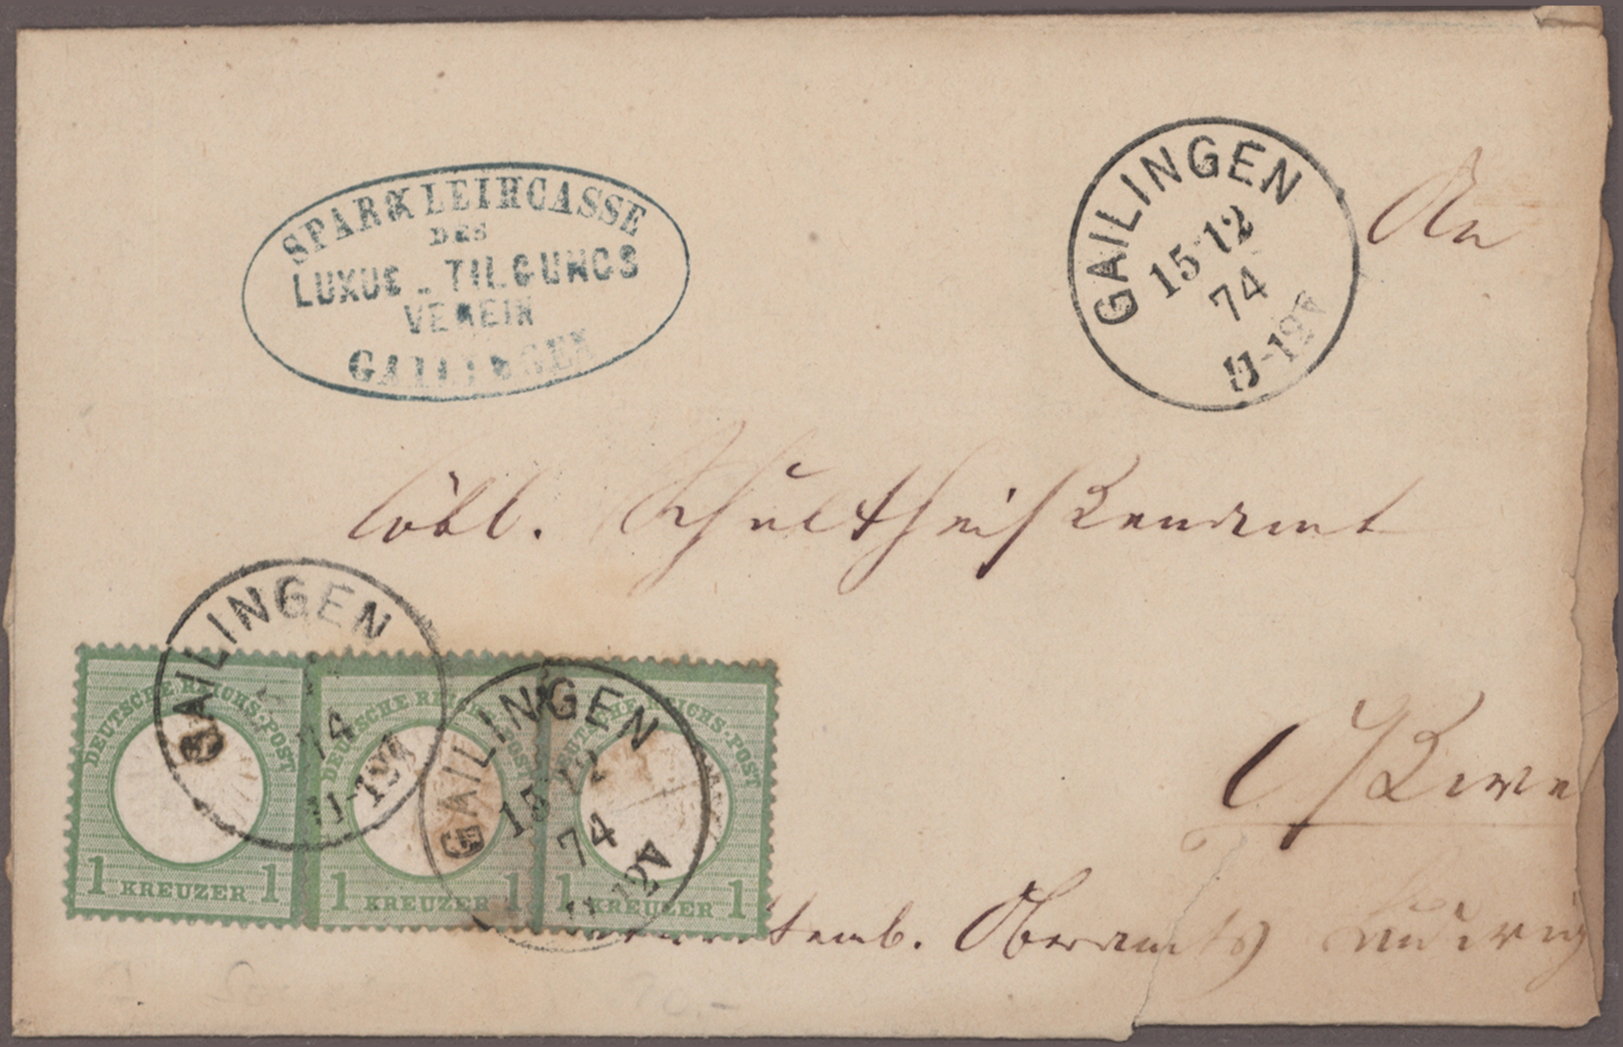 SPAR & LEIHCASSE
DES
LUXUS - TILGUNGS
VEREIN
GAILINGEN
GAILINGEN
15 12
74
11-12V
An
Löbl. Schultheißenamt
GAILINGEN
74
11-12V
GAILINGEN
15 12
74
11-12V
DEUTSCHE REICHS-POST
1 KREUZER 1
DEUTSCHE REICHS-POST
1 KREUZER 1
DEUTSCHE REICHS-POST
1 KREUZER 1
temb. Oberamts